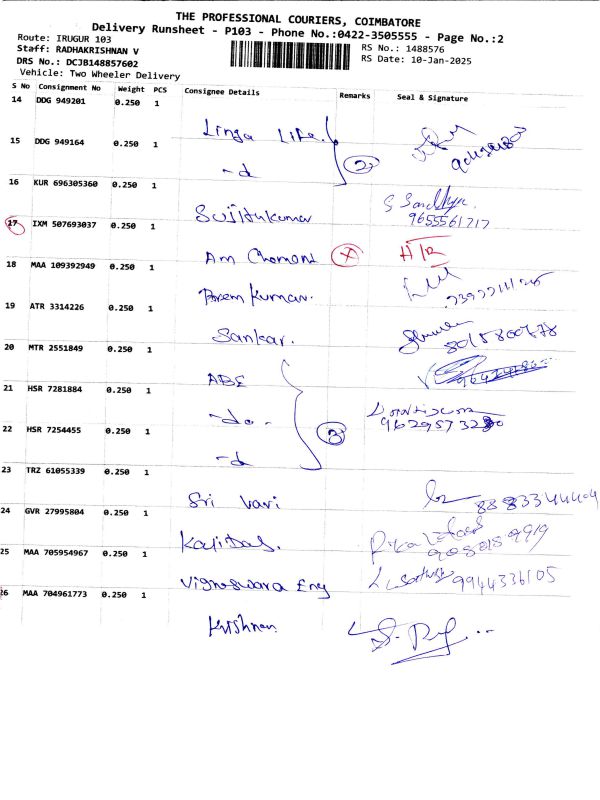 THE PROFESSIONAL COURIERS, COIMBATORE
Delivery Runsheet - P103 - Phone No.:0422-3505555 - Page No.:2
Route: IRUGUR 103 RS No.: 1488576
Staff: RADHAKRISHNAN V RS Date: 10-Jan-2025
DRS No.: DCJB148857602
Vehicle: Two Wheeler Delivery
S No Consignment No Weight PCS Consignee Details Remarks Seal & Signature
14 DDG 949201 0.250 1
Linga Life.
15 DDG 949164 0.250 1
-d 2
16 KUR 696305360 0.250 1
Sujithkumar S Sandhya.
9655561717
17 IXM 507693037 0.250 1
Am Chamont X
18 MAA 109392949 0.250 1
Prem Kumar.
19 ATR 3314226 0.250 1
Sankar.
20 MTR 2551849 0.250 1
ABE
21 HSR 7281884 0.250 1
-do-
22 HSR 7254455 0.250 1 3
-d
23 TRZ 61055339 0.250 1
Sri Vari 8883344404
24 GVR 27995804 0.250 1
Kalidas.
25 MAA 705954967 0.250 1
Vigneswara Eng 9944336105
26 MAA 704961773 0.250 1
Krishnan